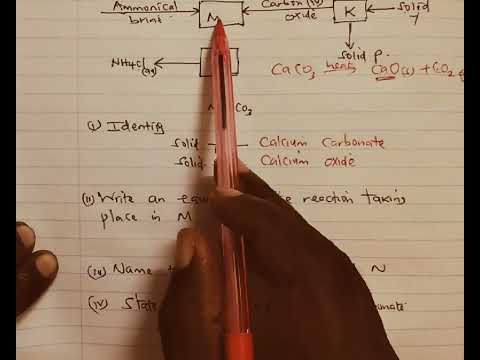 Ammonical
brine
M
Carbon (iv)
oxide
K
solid
Y
solid P.
NH4Cl(aq)
CaCO3 heat CaO(s) + CO2
CO2
(i) Identify
solid Calcium Carbonate
solid Calcium oxide
(ii) Write an reaction taking
place in M
(iv) Name N
(iv) State